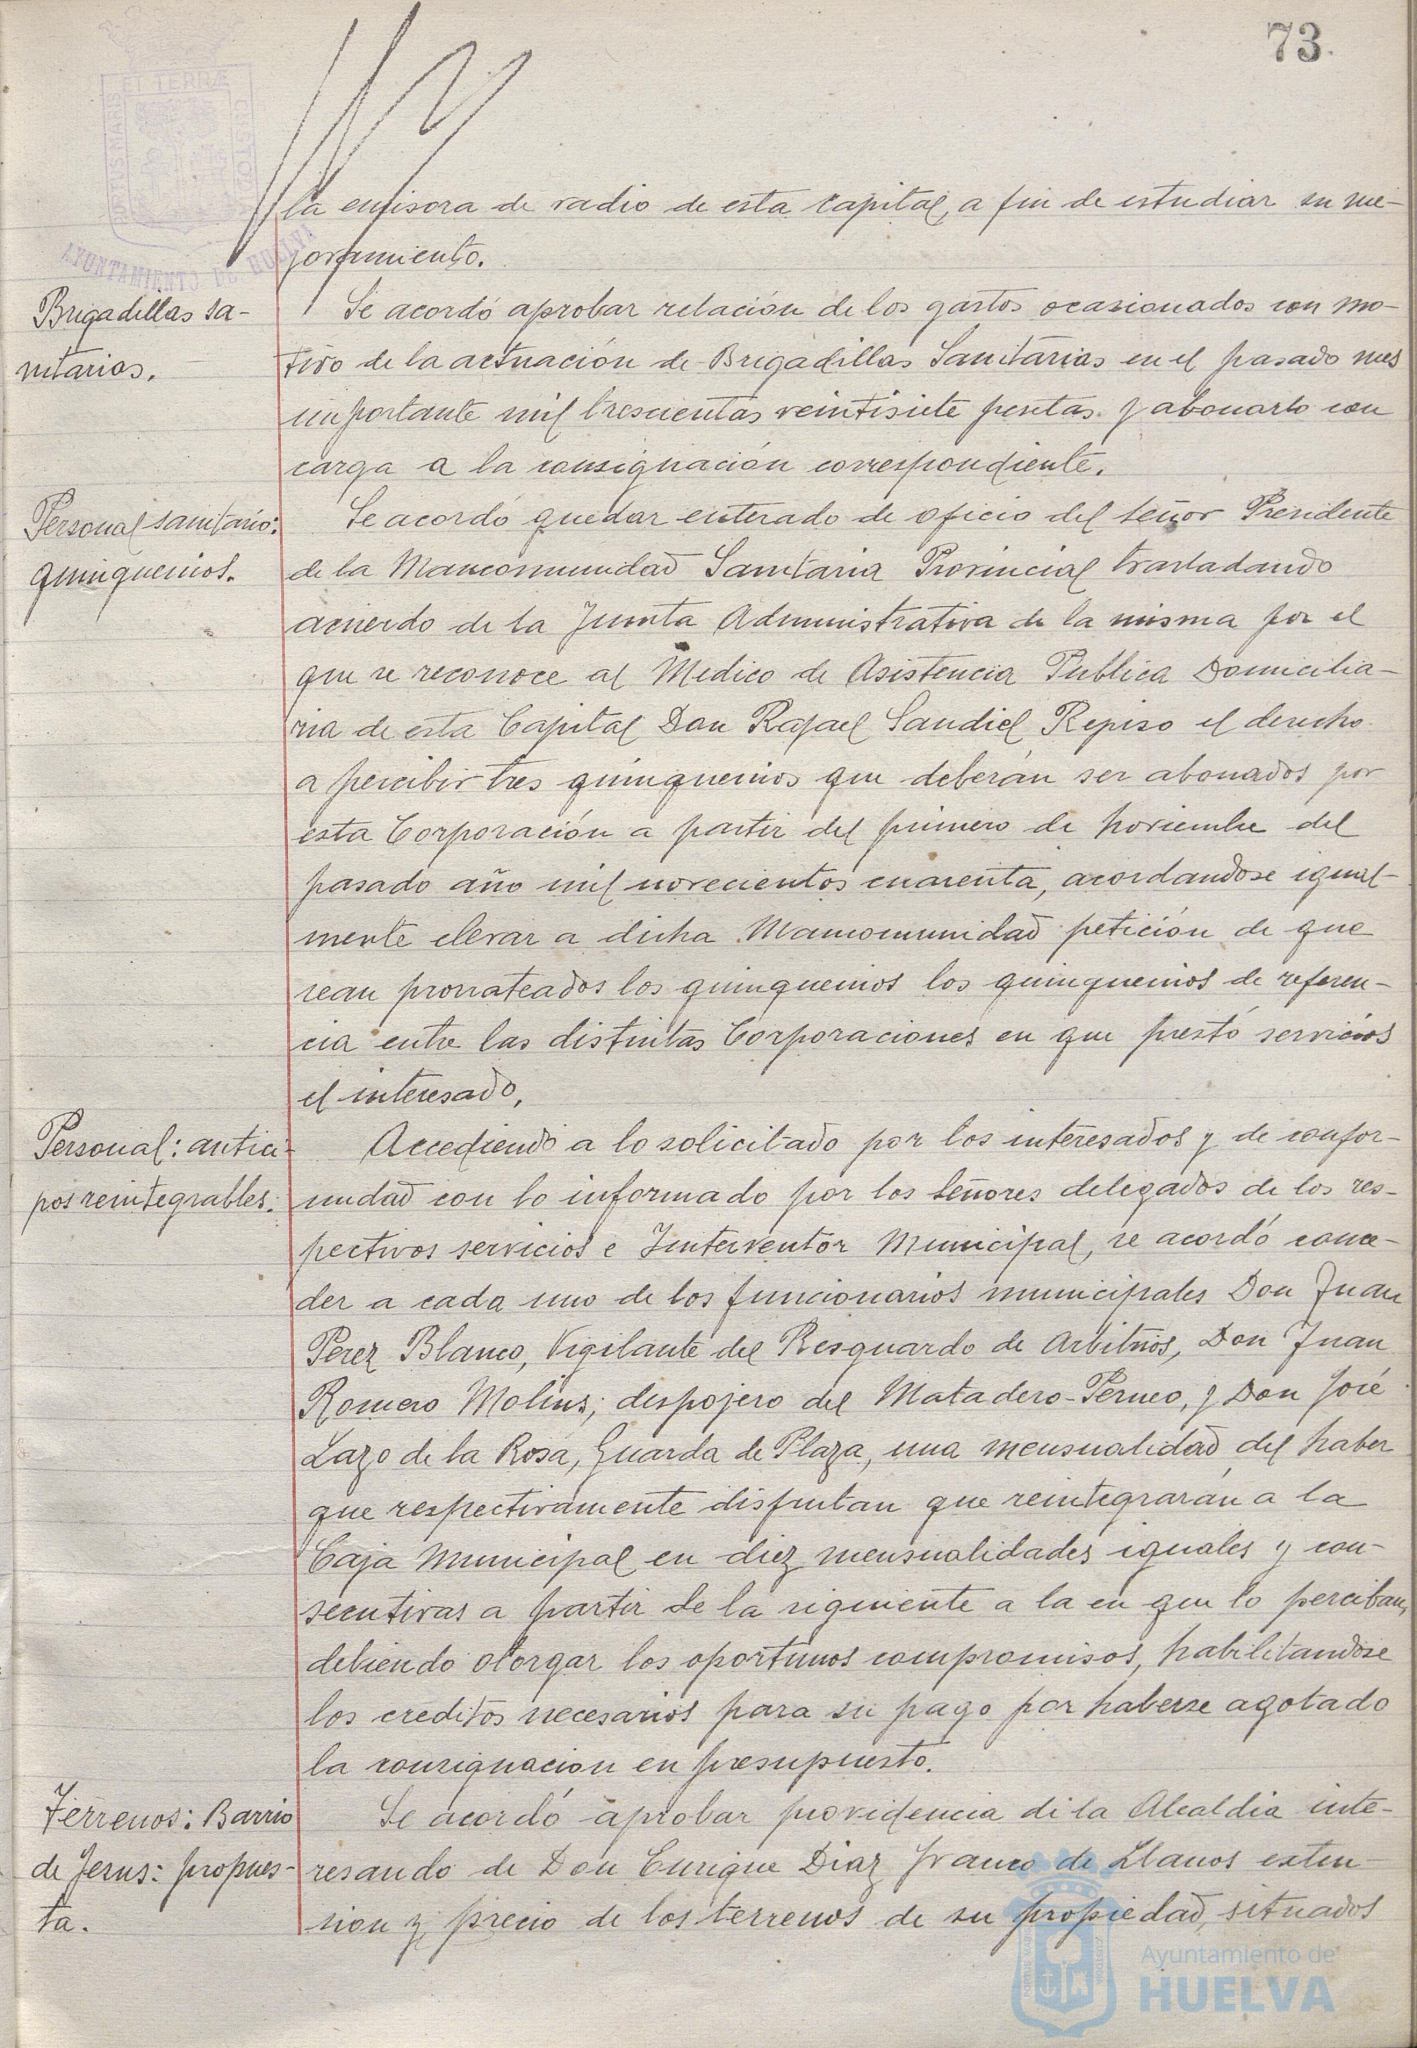 73.
ET TERRÆ
PORTUS MARIS
CUSTO
AYUNTAMIENTO DE HUELVA
la emisora de radio de esta capital, a fin de estudiar su me-
joramiento.
Brigadillas sa-
nitarias.
Se acordó aprobar relación de los gastos ocasionados con mo-
tivo de la actuación de Brigadillas Sanitarias en el pasado mes
importante mil trescientas veintisiete pesetas y abonarlo con
carga a la consignación correspondiente.
Personal sanitario:
quinquenios.
Se acordó quedar enterado de oficio del señor Presidente
de la Mancomunidad Sanitaria Provincial trasladando
acuerdo de la Junta Administrativa de la misma por el
que se reconoce al Medico de Asistencia Publica Domicilia-
ria de esta Capital Don Rafael Sandiel Repiso el derecho
a percibir tres quinquenios que deberán ser abonados por
esta Corporación a partir del primero de noviembre del
pasado año mil novecientos cuarenta, acordandose igual-
mente elevar a dicha Mancomunidad petición de que
sean prorrateados los quinquenios los quinquenios de referen-
cia entre las distintas Corporaciones en que prestó servicios
el interesado.
Personal: antici-
pos reintegrables.
Accediendo a lo solicitado por los interesados y de confor-
midad con lo informado por los señores delegados de los res-
pectivos servicios e Interventor Municipal, se acordó conce-
der a cada uno de los funcionarios municipales Don Juan
Perez Blanco, Vigilante del Resguardo de Arbitrios, Don Juan
Romero Molins, despojero del Matadero-Perneo, y Don José
Lazo de la Rosa, Guarda de Plaza, una mensualidad del haber
que respectivamente disfrutan que reintegrarán a la
Caja Municipal en diez mensualidades iguales y con-
secutivas a partir de la siguiente a la en que lo perciban,
debiendo otorgar los oportunos compromisos, habilitandose
los creditos necesarios para su pago por haberse agotado
la consignacion en presupuesto.
Terrenos: Barrio
de Jesus: propues-
ta.
Se acordó aprobar providencia di la Alcaldia inte-
resando de Don Enrique Diaz Franco de Llanos exten-
sion y precio de los terrenos de su propiedad, situados
Ayuntamiento de
HUELVA